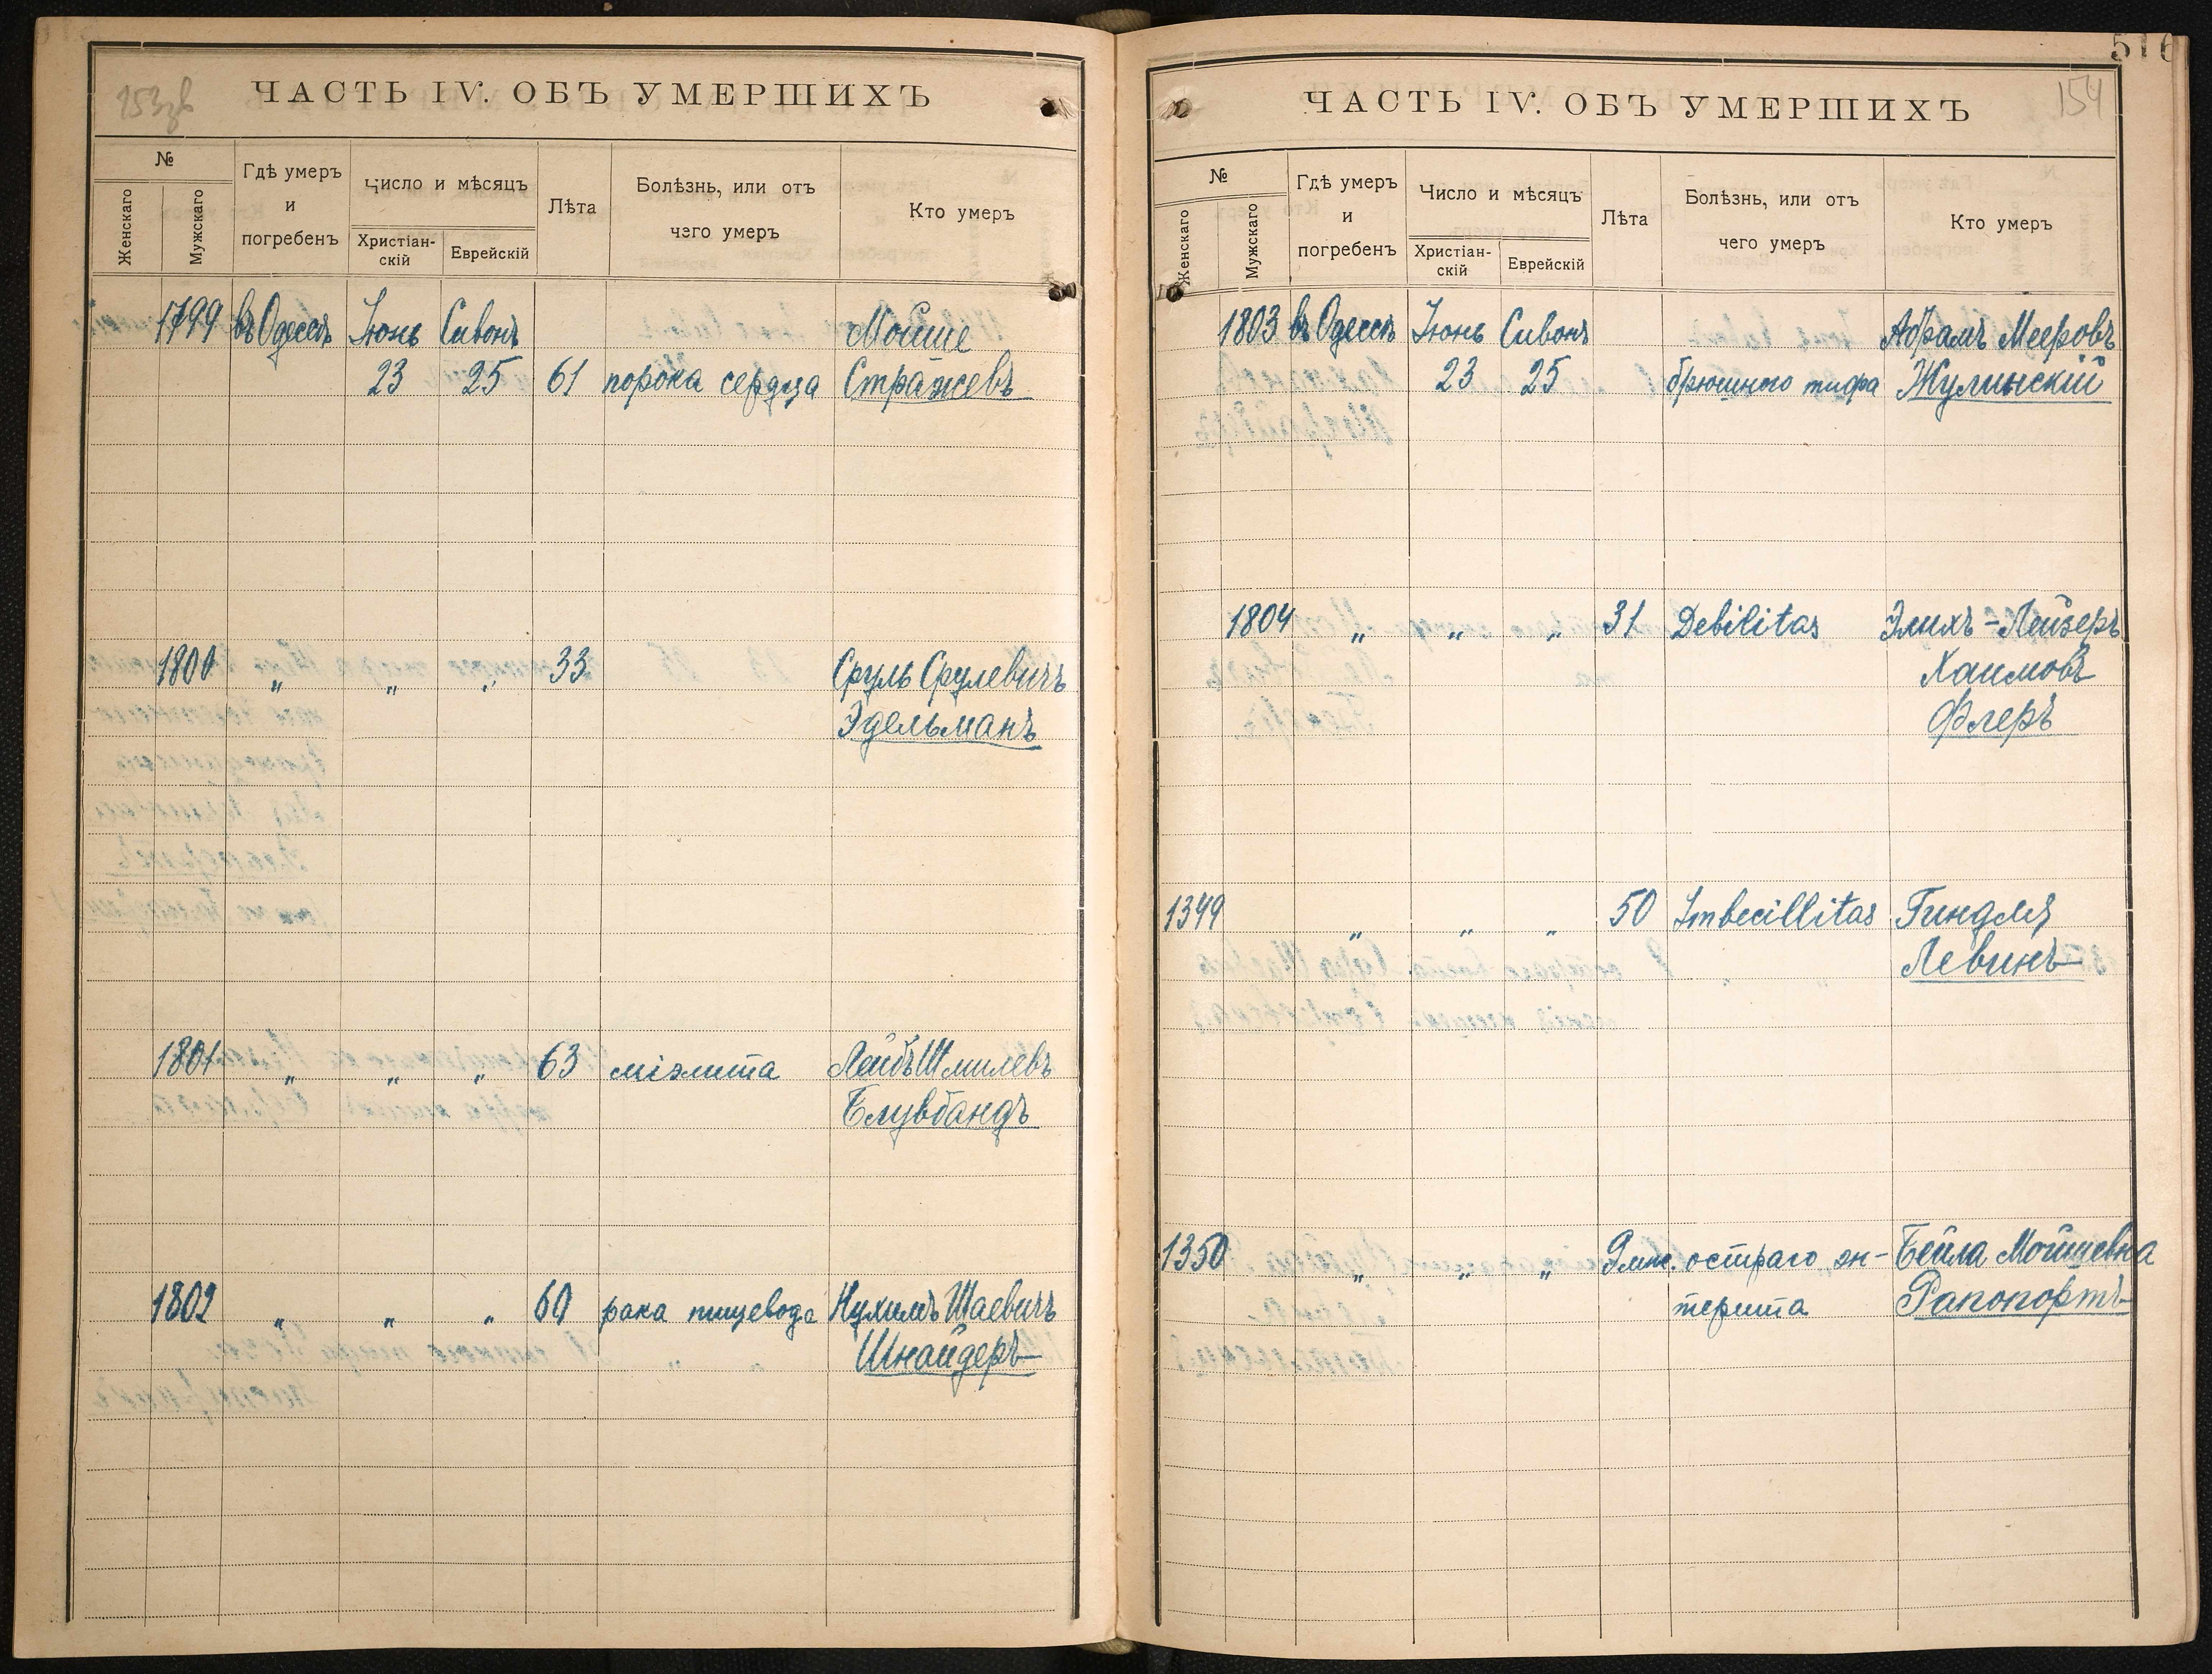 153 об
ЧАСТЬ IV. ОБЪ УМЕРШИХЪ
№
Женскаго
Мужскаго
Гдѣ умеръ
и
погребенъ
Число и мѣсяцъ
Христіан-
скій
Еврейскій
Лѣта
Болѣзнь, или отъ
чего умеръ
Кто умеръ
1799 въ Одессѣ Іюнь Сивонъ Мойше
23 25 61 порока сердца Стражевъ
1800 „ „ „ 33 Сруль Срулевичъ
Эдельманъ
1801 „ „ „ 63 міэлита Лейбъ Шмилевъ
Блувбандъ
1802 „ „ „ 60 рака пищевода Нухимъ Шаевичъ
Шнайдеръ
516
154
ЧАСТЬ IV. ОБЪ УМЕРШИХЪ
№
Женскаго
Мужскаго
Гдѣ умеръ
и
погребенъ
Число и мѣсяцъ
Христіан-
скій
Еврейскій
Лѣта
Болѣзнь, или отъ
чего умеръ
Кто умеръ
1803 въ Одессѣ Іюнь Сивонъ Абрамъ Мееровъ
23 25 брюшного тифа Жулинскій
1804 „ „ „ 31 Debilitas Элихъ-Лейзеръ
Хаимовъ
Флеръ
1349 „ „ „ 50 Imbecillitas Гиндля
Левинъ
1350 „ „ „ 9 мис. остраго эн- Бейла Мойшевна
терита Рапопортъ